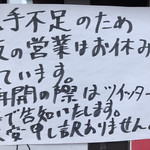 手不足のため
の営業はお休み
ています。
再開の際はツイッター
で告知いたします。
変申し訳ありません。